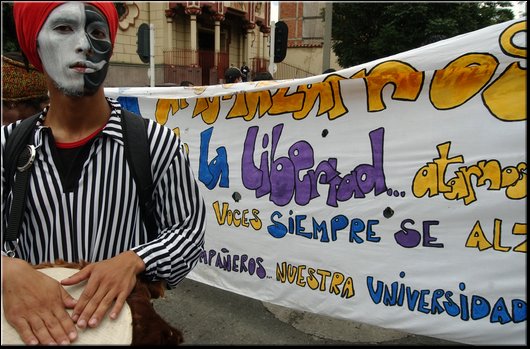 la libertad... atarnos
VOCES SIEMPRE SE ALZ
MPAÑEROS... NUESTRA UNIVERSIDAD